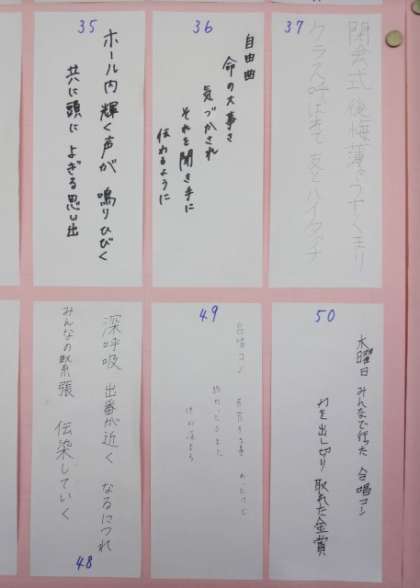 35
ホール内 輝く声が 鳴りひびく
共に頭に よぎる思い出
36
自由曲
命の大事さ
気づかされ
それを聞き手に
伝わるように
37
閉会式 後悔薄々
クラス呼ばれて 友とハイタッチ
深呼吸 出番が近く なるにつれ
みんなの緊張 伝染していく
48
49
合唱コン
50
木曜日 みんなで行った 合唱コン
力を出し切り 取れた金賞